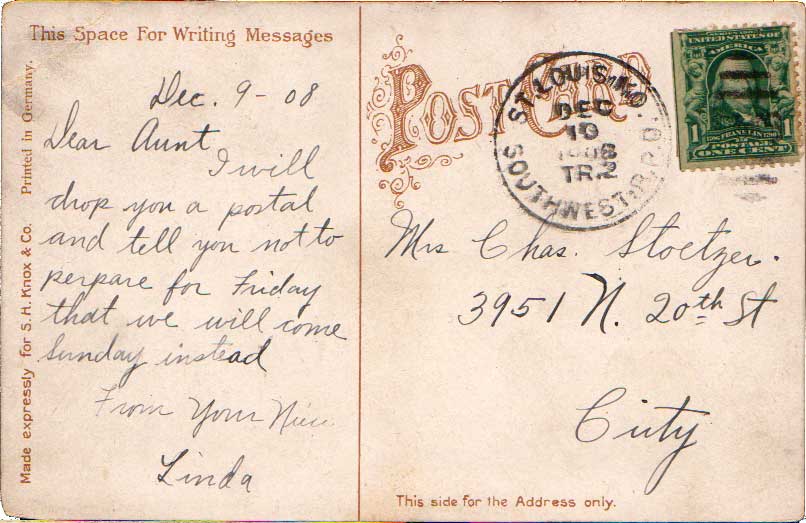 This Space For Writing Messages
Dec. 9 - 08
Dear Aunt
I will
drop you a postal
and tell you not to
perpare for Friday
that we will come
Sunday instead
From Your Niece
Linda
Made expressly for S. H. Knox & Co. Printed in Germany.
POST CARD
ST. LOUIS, MO.
DEC
10
1908
TR.2
SOUTHWEST. R.P.O.
UNITED STATES OF
1 FRANKLIN 1
POSTAGE
ONE CENT
Mrs Chas. Stoetzer.
3951 N. 20th St
City
This side for the Address only.